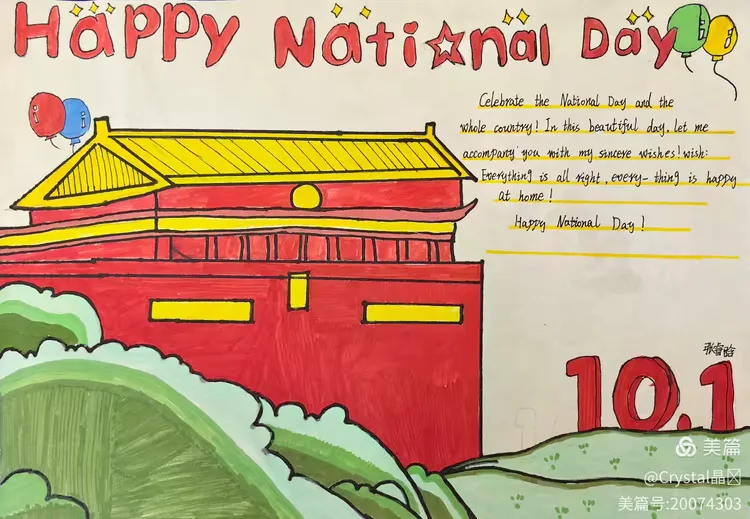 Happy National Day
Celebrate the National Day and the
whole country! In this beautiful day, let me
accompany you with my sincere wishes! wish:
Everything is all right, every-thing is happy
at home!
Happy National Day!
张睿晗
10.1
美篇
@Crystal晶
美篇号:20074303